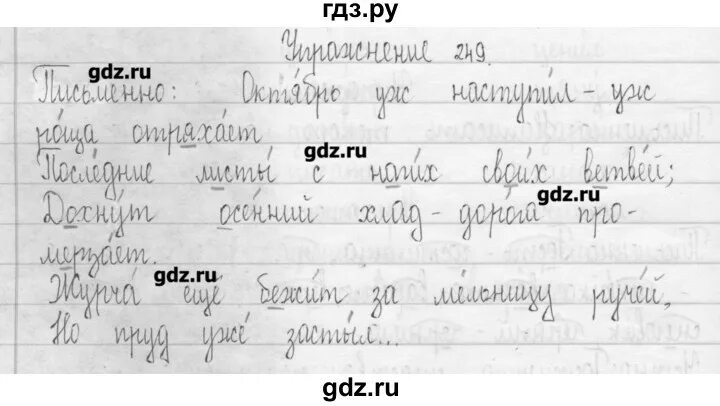 гдз.ру
Упражнение 249.
gdz.ru
Письменно: Октя́брь уж наступи́л - уж
ро́ща отряха́ет
gdz.ru
После́дние листы́ с наги́х свои́х ветве́й;
gdz.ru
Дохну́л осе́нний хлад - доро́га про-
мерза́ет.
gdz.ru
Журча́ ещё бежи́т за ме́льницу руче́й,
Но пруд уже́ засты́л...
gdz.ru